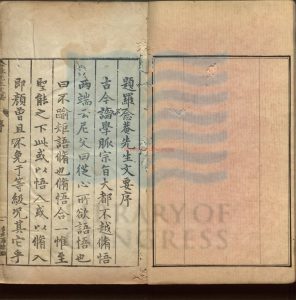 題羅念菴先生文要序
古今論學脈宗旨大都不越脩悟
兩端云尼父曰從心所欲語悟也
曰不踰矩語脩也脩悟合一惟至
聖能之下此或以悟入或以脩入
即顏曾且不免于等級況其它乎
LIBRARY OF
CONGRESS